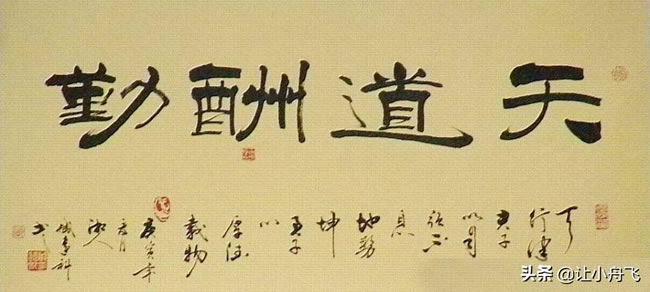 天道酬勤
天
行健
君子
以自
强不
息
地勢
坤
君子
以
厚德
載物
庚寅年
头条 @让小舟飞